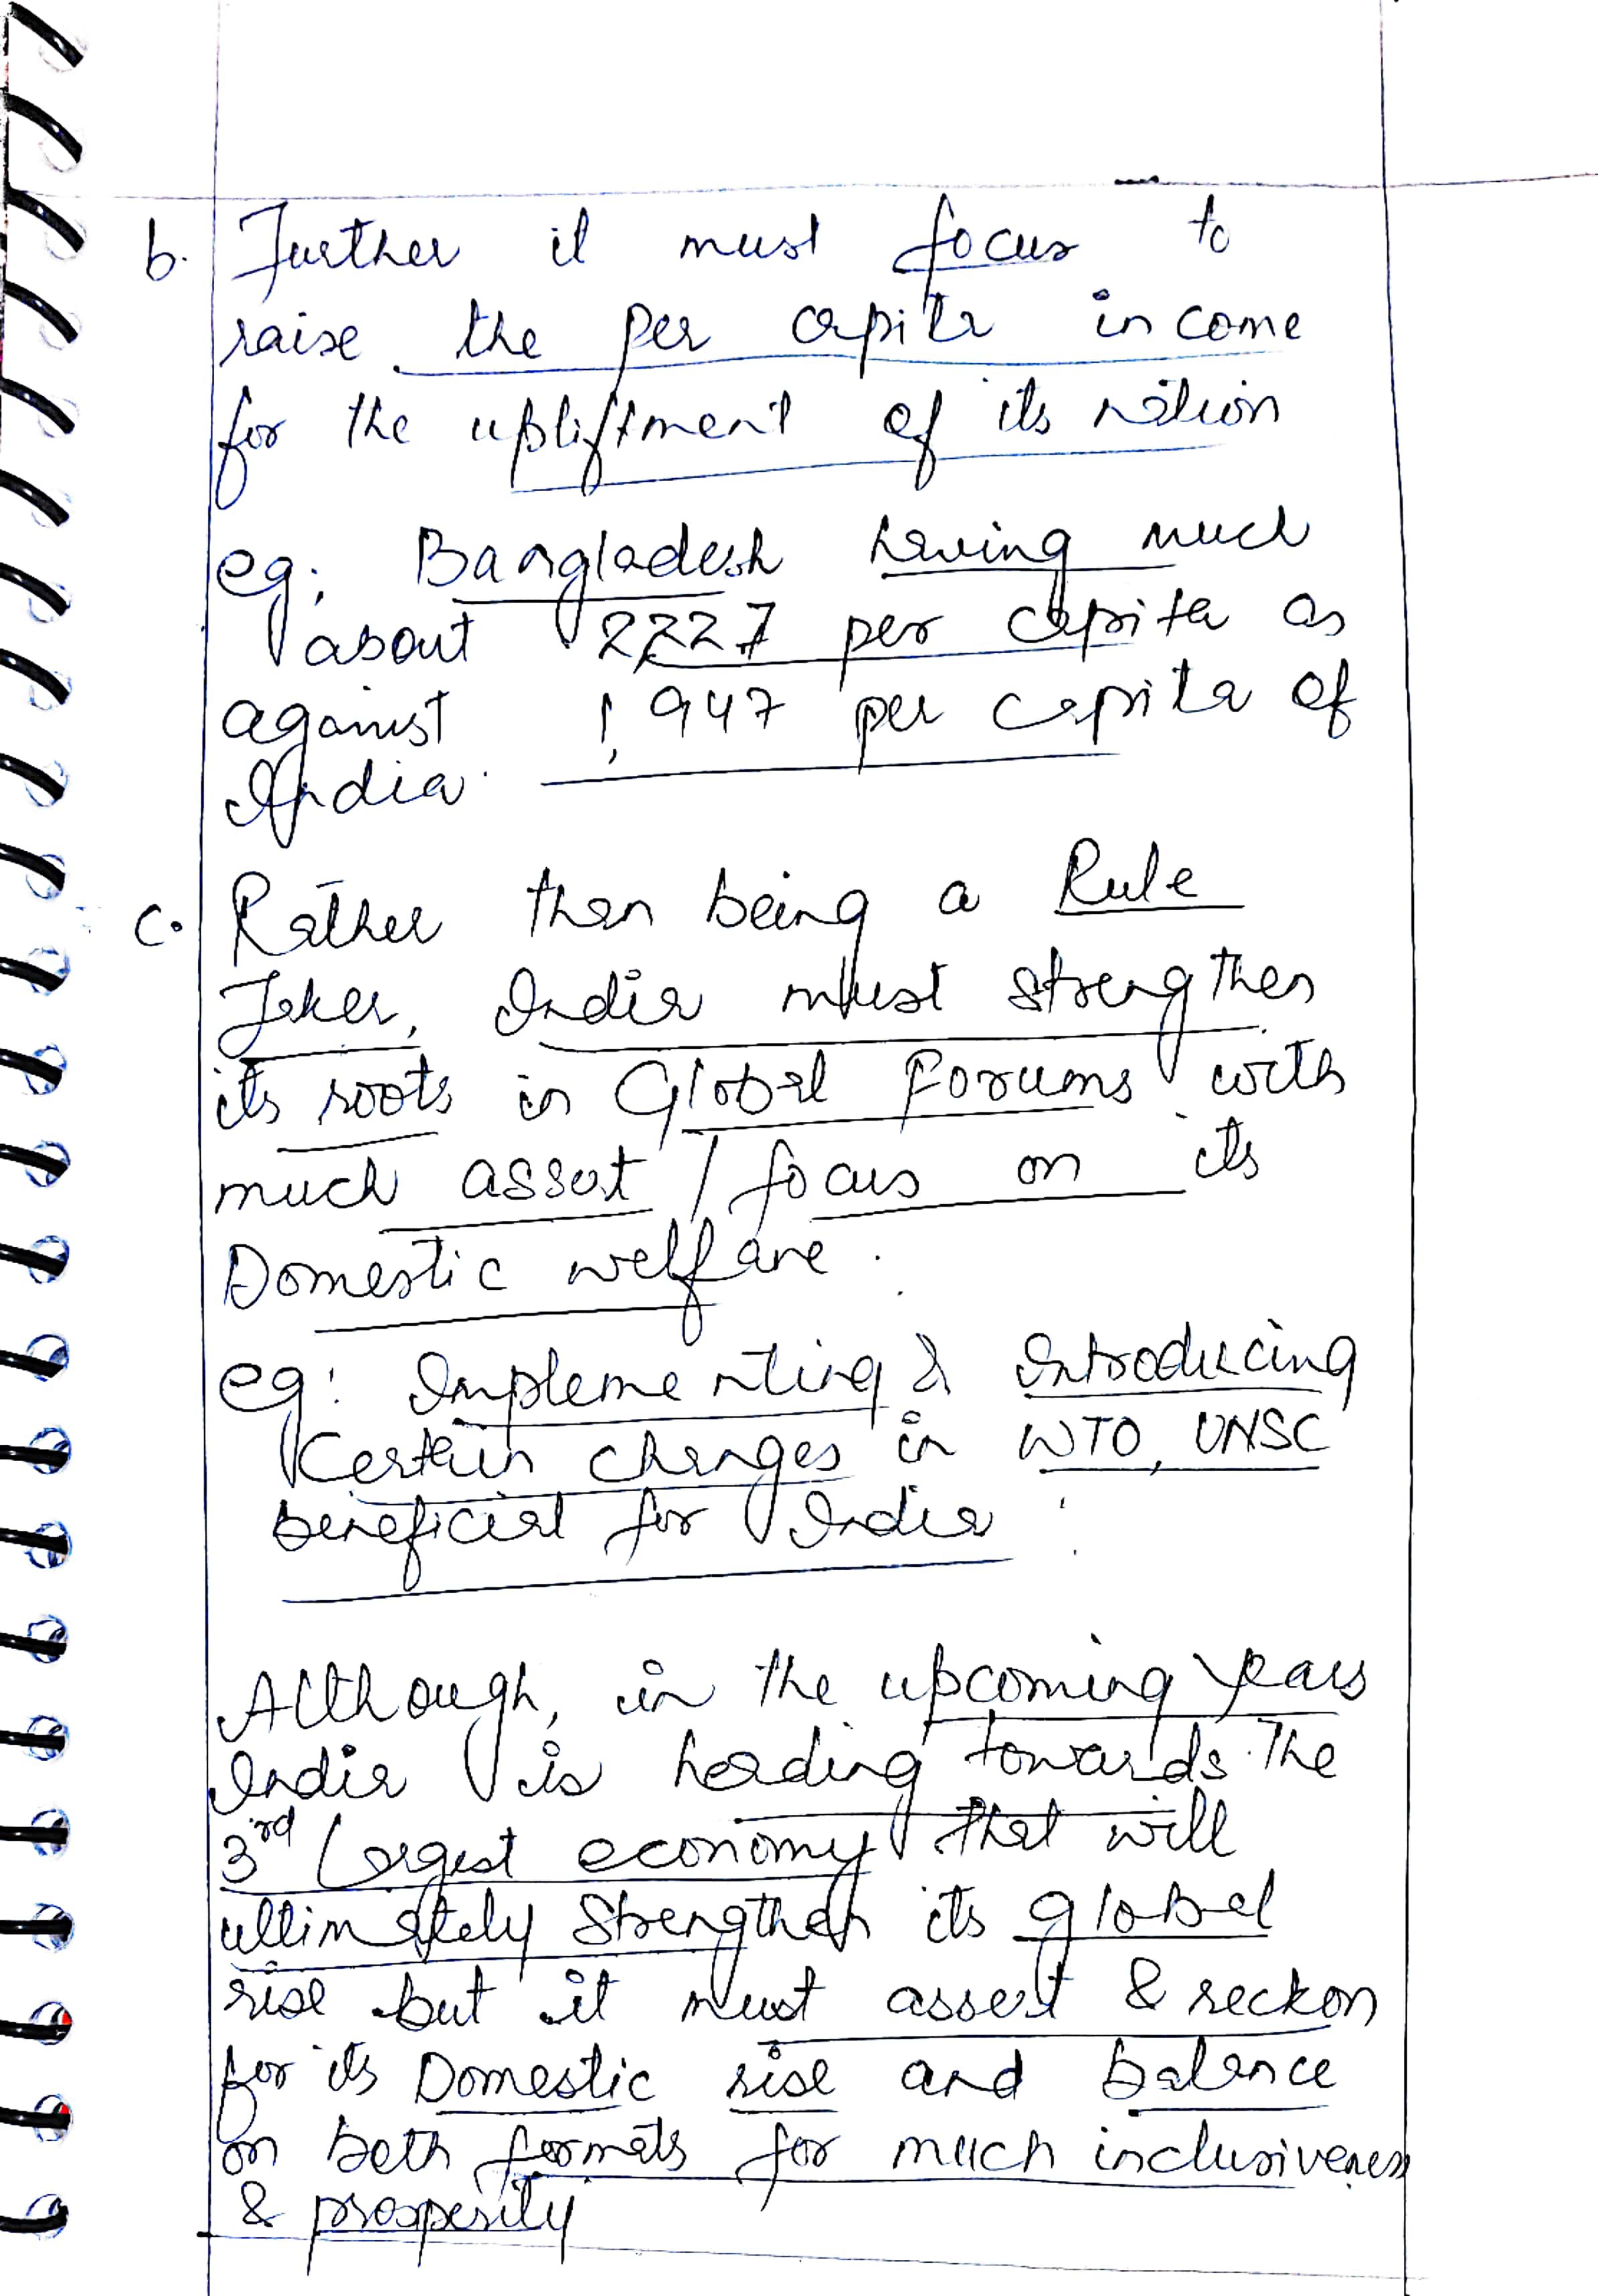 b. Further it must focus to
raise the per capita income
for the upliftment of its nation
eg: Bangladesh having much
about 2227 per capita as
against 1,947 per capita of
India.
c. Rather than being a Rule
Taker, India must strengthen
its roots in Global Forums with
much assert / focus on its
Domestic welfare.
eg: Implementing & Introducing
Certain changes in WTO, UNSC
beneficial for India.
Although, in the upcoming years
India is heading towards the
3rd Largest economy that will
ultimately strengthen its global
rise but it must assert & reckon
for its Domestic rise and balance
on both formats for much inclusiveness
& prosperity